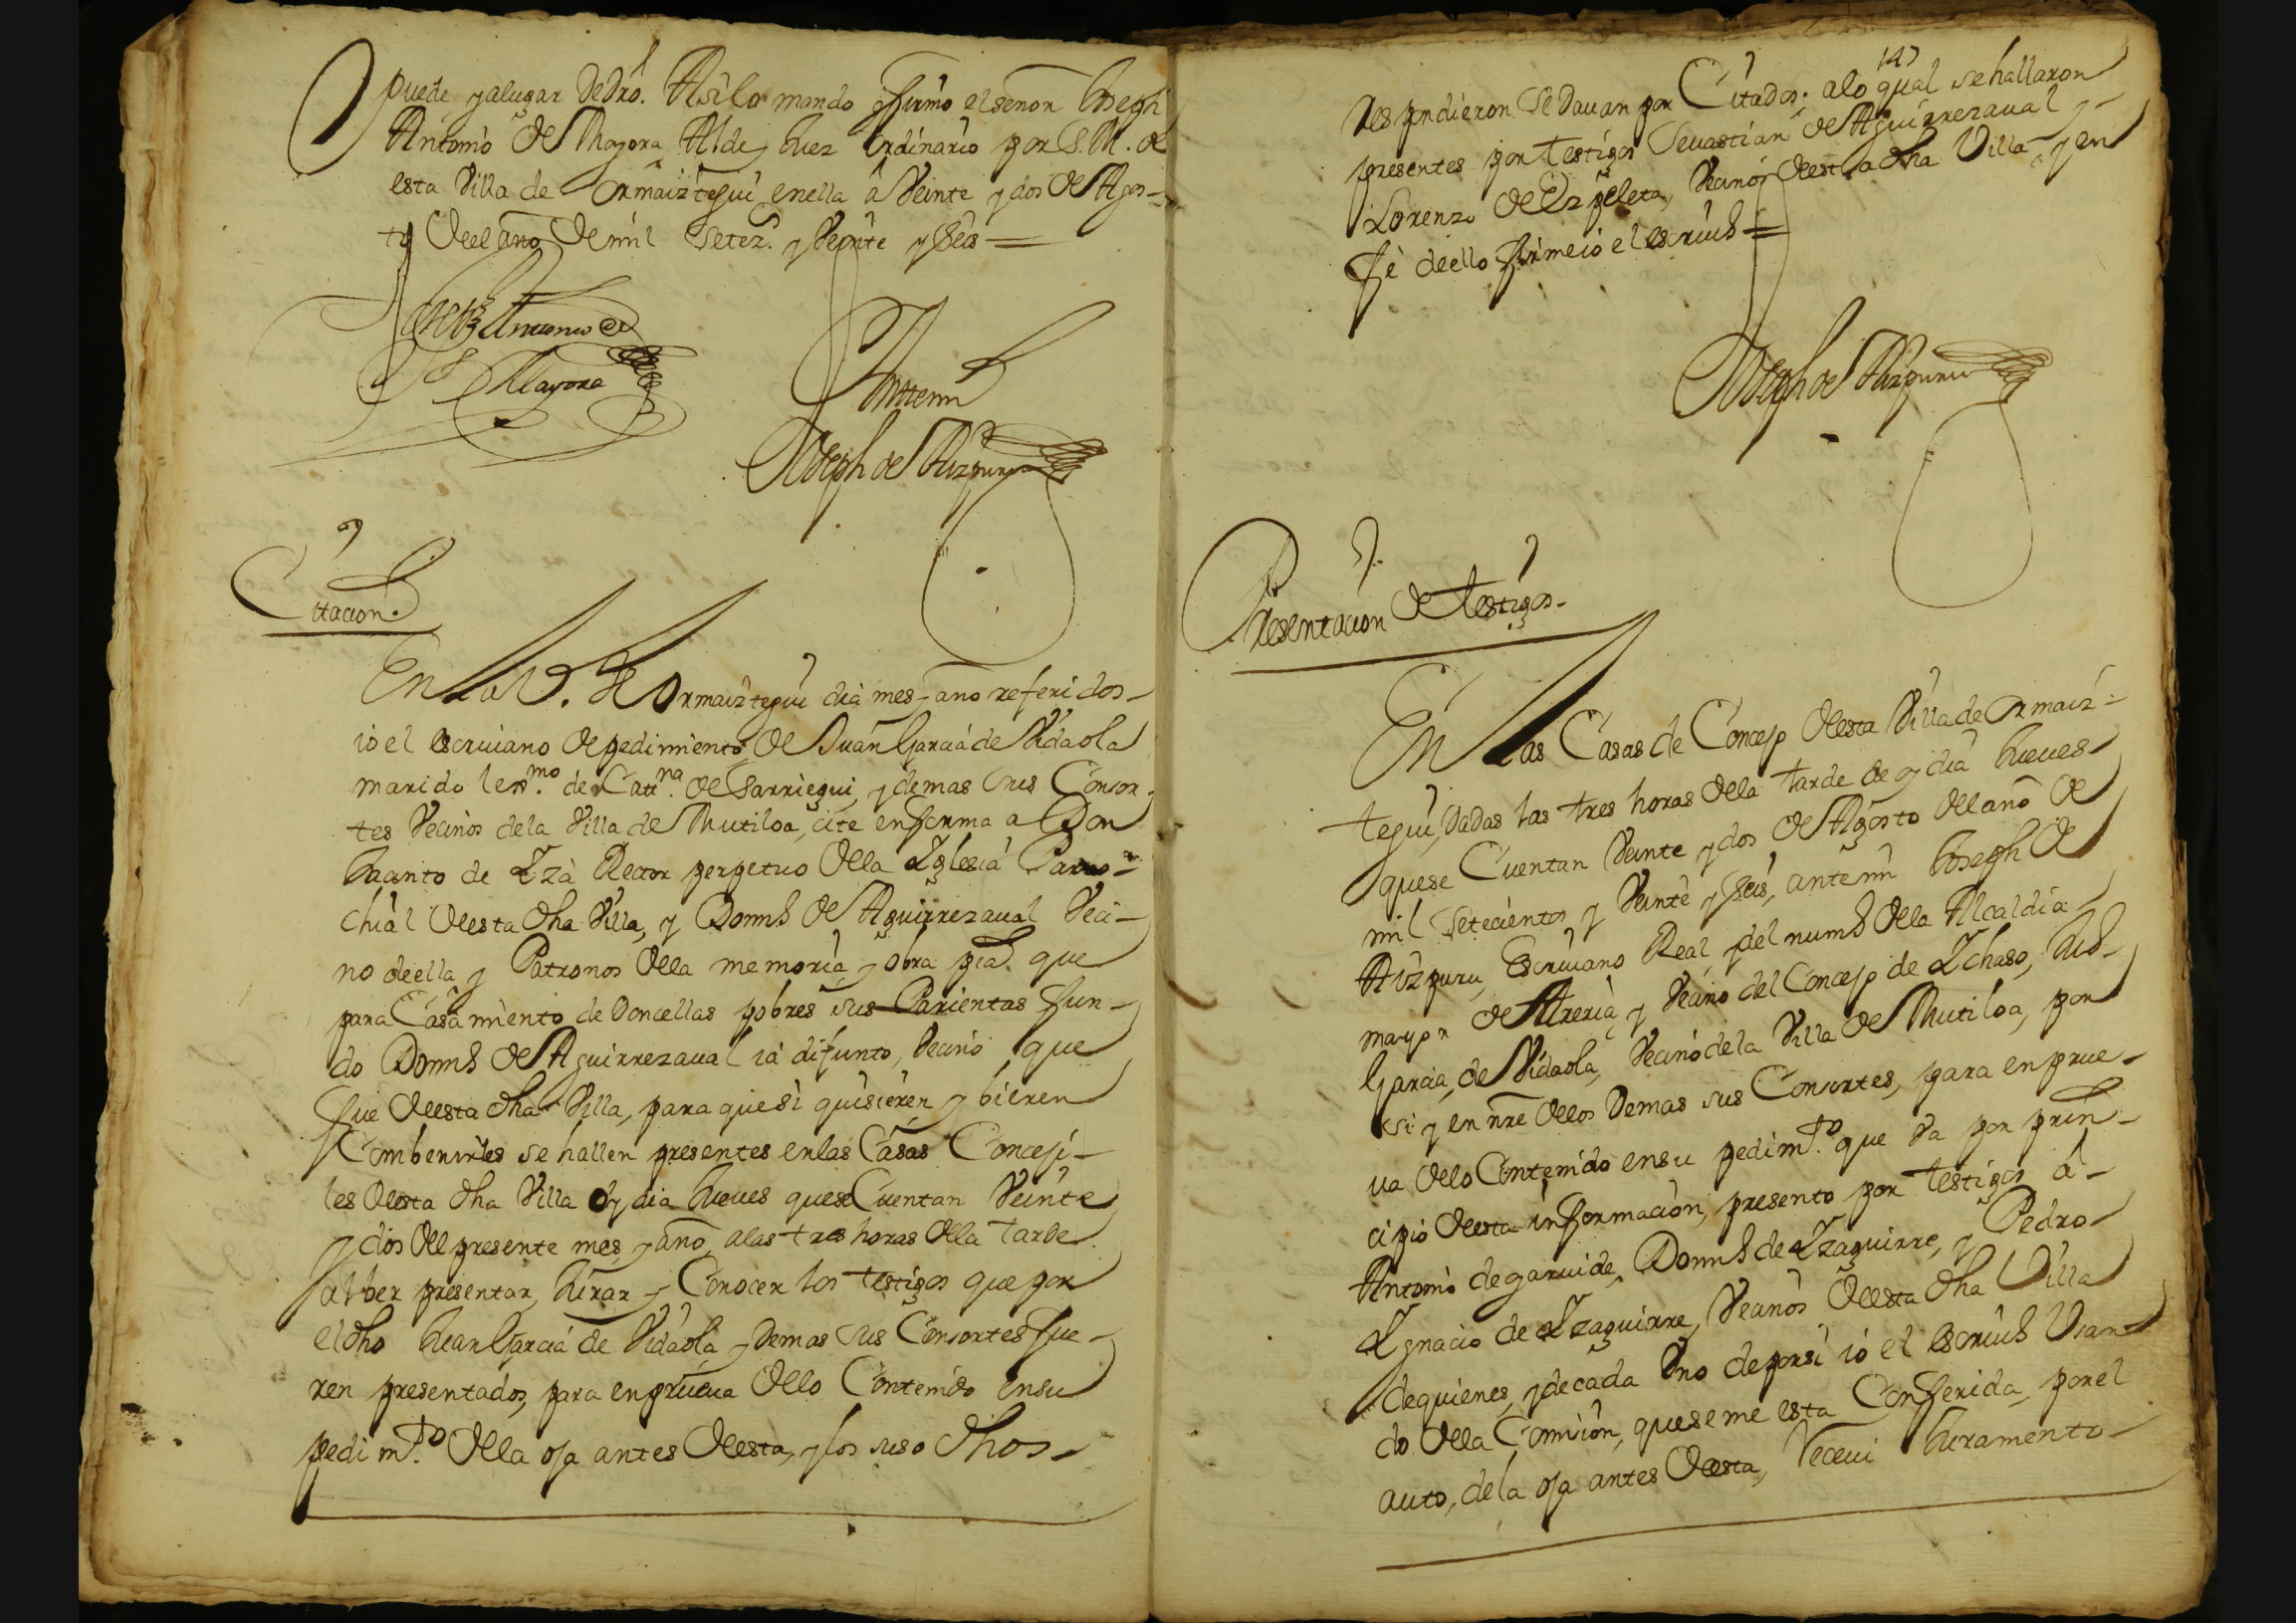 puede y a lugar de dro. Asi lo mando y firmo el señor Joseph
Antonio de Mayora Alde y Juez ordinario por S. M. de
esta Villa de Ormaiztegui en ella a Veinte y dos de Agos-
to del año de mil setez.s y Veinte y seis =
Joseph Antonio de
Mayora
Ante mi
Joseph de Aizpuru
Citacion
En la V. de Ormaiztegui dia mes y año referidos
io el escriuano de pedimiento de Juan Garcia de Vidaola
marido lexmo. de Cattna. de Sarriegui, y demas sus Consor-
tes Vecinos de la Villa de Mutiloa, cite en forma a Don
Jacinto de Yza Rector perpetuo della Yglesia Parro-
chial desta dha Villa, y Domo de Aguirrezaual Veci-
no de ella y Patronos della memoria y obra pia que
para Casamiento de Doncellas pobres sus Parientas fun-
do Domo de Aguirrezaual ia difunto, Vecino que
fue desta dha Villa, para que si quisieren y bieren
Combenirles se hallen presentes en las Casas Conceji-
les desta dha Villa oy dia Jueues que se Cuentan Veinte
y dos del presente mes y año, a las tres horas della tarde
al ber presentar, Jurar y Conocer los testigos que por
el dho Juan Garcia de Vidaola y demas sus Consortes fue-
ren presentados, para en prueua dello Contenido en su
pedimto. della oja antes desta, y los suso dhos
147
Respondieron se dauan por Citados; a lo qual se hallaron
presentes por testigos Seuastian de Aguirrezaual y
Lorenzo de Ezpeleta, Vecinos desta dha Villa y en
fe de ello firme io el escriuo =
Joseph de Aizpuru
Presentacion de testigos.
En las Casas de Concejo desta Villa de Ormaiz-
tegui, dadas las tres horas dela tarde de oy dia Jueues
que se Cuentan Veinte y dos de Agosto del año de
mil setecientos y Veinte y seis, ante mi Joseph de
Aizpuru, Escriuano Real y del numo della Alcaldia
mayor de Areria, y Vecino del Concejo de Ychaso, Juo
Garcia, de Vidaola, Vecino de la Villa de Mutiloa, por
si y en nre dellos demas sus Consortes, para en prue-
ua dello Contenido en su pedimto. que va por prin-
cipio desta informacion, presento por testigos a
Antonio de garuide, Domo de Yzaguirre, y Pedro
Ygnacio de Yzaguirre, Vecinos desta dha Villa
de quienes, y de cada Uno de por si io el escriuo Usan-
do della Comision, que se me esta Conferida, por el
auto, de la oja antes desta, Reciui Juramento